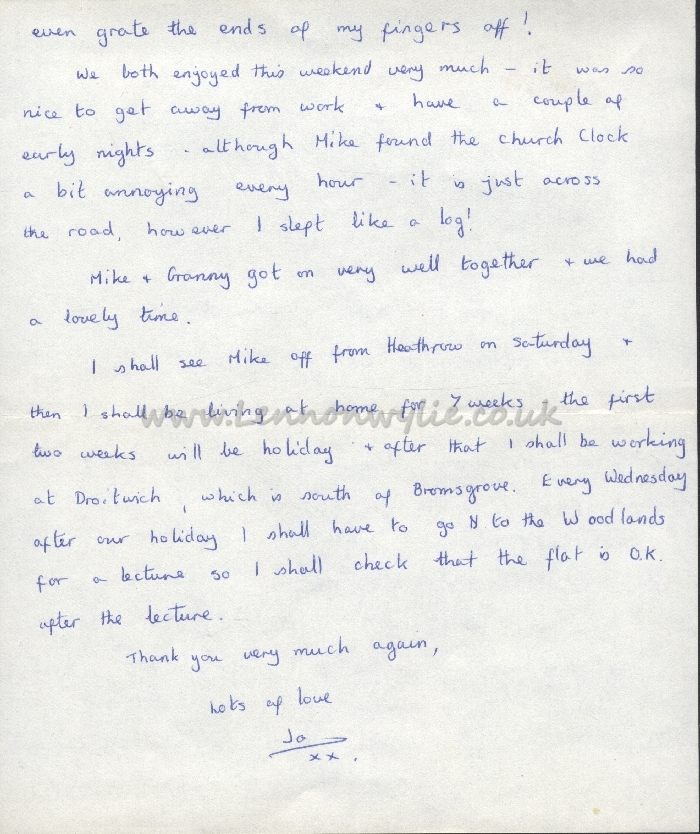 even grate the ends of my fingers off!
We both enjoyed this weekend very much - it was so
nice to get away from work + have a couple of
early nights - although Mike found the church Clock
a bit annoying every hour - it is just across
the road, however I slept like a log!
Mike + Granny got on very well together + we had
a lovely time.
I shall see Mike off from Heathrow on Saturday +
then I shall be living at home for 7 weeks the first
www.Lennonwylie.co.uk
two weeks will be holiday + after that I shall be working
at Droitwich, which is south of Bromsgrove. Every Wednesday
after our holiday I shall have to go N to the Woodlands
for a lecture so I shall check that the flat is O.K.
after the lecture.
Thank you very much again,
Lots of love
Jo
xx.